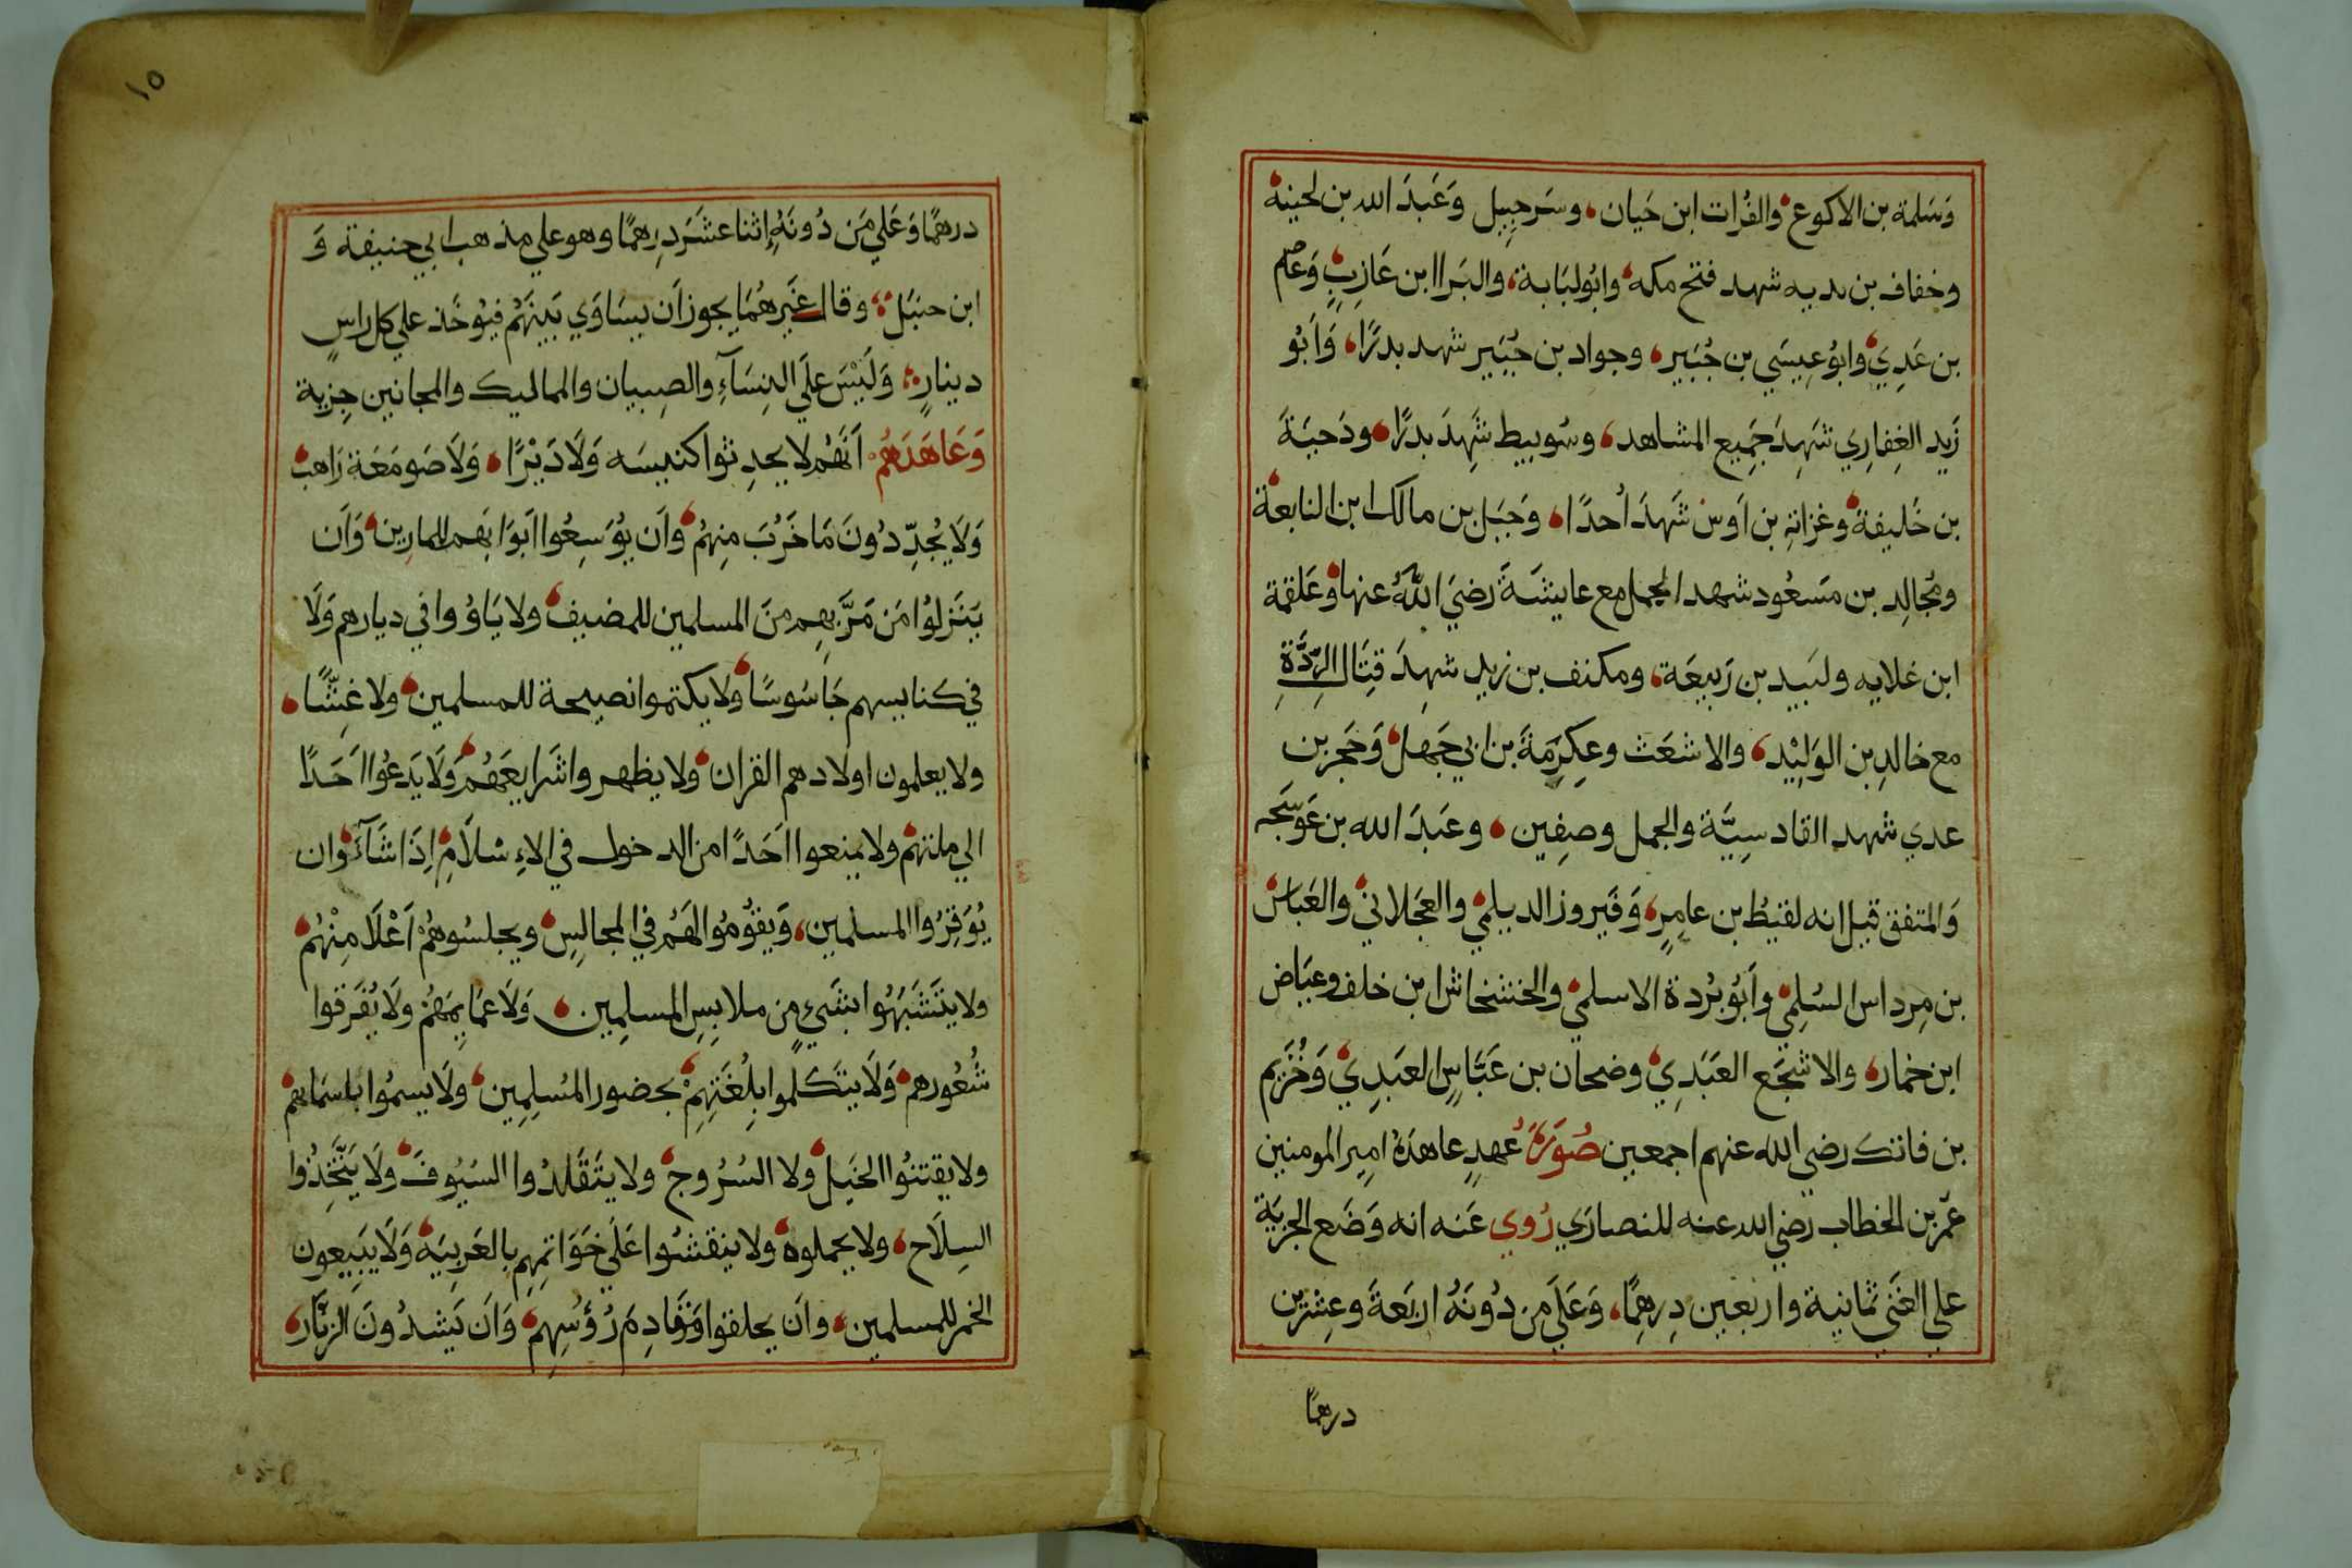 وَسَلمة بن الاكوع والفُرات ابن حَيان، وسَرحبِيل وَعَبدَ الله بن لحينة
وخفاف بن بديه شهد فتح مكه وابُولبَابة، والبَراابن عَازِبٍ وَعاصم
بن عَدِي وابوُعِيسَي بن جُبَير، وجواد بن جُبَير شهد بدرًا، وَاَبُو
زَيد الغِفارِي شَهِدَ جَمِيع المشاهد، وسُويبط شَهِدَ بدرًا، ودَحيَةَ
بن خَليفة وغزاتهِ بن اَوس شَهدَ اُحدًا، وَجَبَل بن مالك ابن النابغة
ومُجالِد بن مَسعُود شهد الجمل مع عايشَةَ رَضيَ اللهُ عنها وعَلقمة
ابن علايه ولبَيد بن رَبيعَة، ومكنف بن زيد شهِدَ قِتَال الرِدَّةِ
مع خالدِ بن الوَلِيْد، والاشعَث وعِكرِمَةَ بن ابي جَهل وَحَجر بن
عدي شهد القادسِيَّة والجمل وصفِين، وعَبدَ الله بن عَوسَجه
وَالمتفق قيل انه لقيطُ بن عامِرٍ، وَفَيروز الديلمي والعَجلاني والعَباس
بن مِرداس السُلِمي وابَوُبُردة الاسلمي والخشخاش ابن خلف وعيَاض
ابن خمار، والاشجَع العَبَدِي وضحان بن عَبَّاسٍ العَبدِي وَخُزَيم
بن فاتك رضي الله عنهم اجمعين صُورَة عُهدٍ عاهدَهُ امير المومنين
عُمَر بن الخطاب رضي الله عنه للنصارَي رُوي عَنه انه وَضَع الجزيَة
علي الغَني ثمانية واربعين دِرهمًا، وَعَلَي مِن دُونَهُ اربَعةَ وعِشرين
درهمًا
١٥
درهمًا وَعَلي مَن دُونَهِ اِثنا عشَرَ دِرهمًا وهو علي مذهب ابي حنيفة وَ
ابن حنبَل، وقال غَيرهُمَا يجوز اَن يسَاوَي بَينَهُم فيُوخَذ علي كل راسٍ
دينارٍ، وَلَيْسَ علَي النِسَآءِ والصِبيان والمماليك والمجانين جِزية
وَعَاهَدَهُم اَنَّهُم لا يحدِثوا كنيسَه وَلَا دَيْرًا، وَلَا صَومَعَة رَاهب
وَلَا يُجدِّدُونَ مَا خَرُبَ مِنهُم وَاَن يُوَسِعُوا ابَوابَهم للمارِين وَاَن
يَنَزلوُا مَن مَرَّ بهِم مِنَ المسلمين للمضيف ولا يَاوُوا في ديارهم وَلَا
في كنايسهم جَاسُوسًا ولا يكتموا نصيحة للمسلمين ولا غِشًّا،
ولا يعلمون اولادهم القران ولا يظهروا شَرايعَهُم وَلَا يَدعُوا اَحَدًا
الي ملتهم ولا يمنعوا اَحَدًا من الدخول في الاِسْلَامِ اِذَا شَآءَ وان
يُوَقِرُوا المسلمين، وَيقوُمُوا لهَمُ في المجالِسِ ويجلسُوهُم اَعْلَا مِنْهُم
ولا يتَشَبَهُوا بشَيءٍ مِن ملابِسِ المسلمِين، وَلَا عمَايِمَهُم ولَا يُفَرقوا
شُعُورهم وَلَا يتكَلموا بلِغُتهِمْ بحضور المُسلِمِين، ولَا يسموُا باسمَايهم
ولا يقتنُوا الخَيل ولا السُرُوج ولا يتَقَلدُوا السيُوفَ ولَا يَتَّخِذُوا
السِلَاح، ولا يحملوه ولا ينقشُوا عَلَي خَوَاتمِهم بالعَربِيَه وَلَا يَبِيعون
الخمر للمسلمين، واَن يحلقوا مَقَادِمَ رُؤسُهِم وَاَن يَشدُونَ الزنَّار،